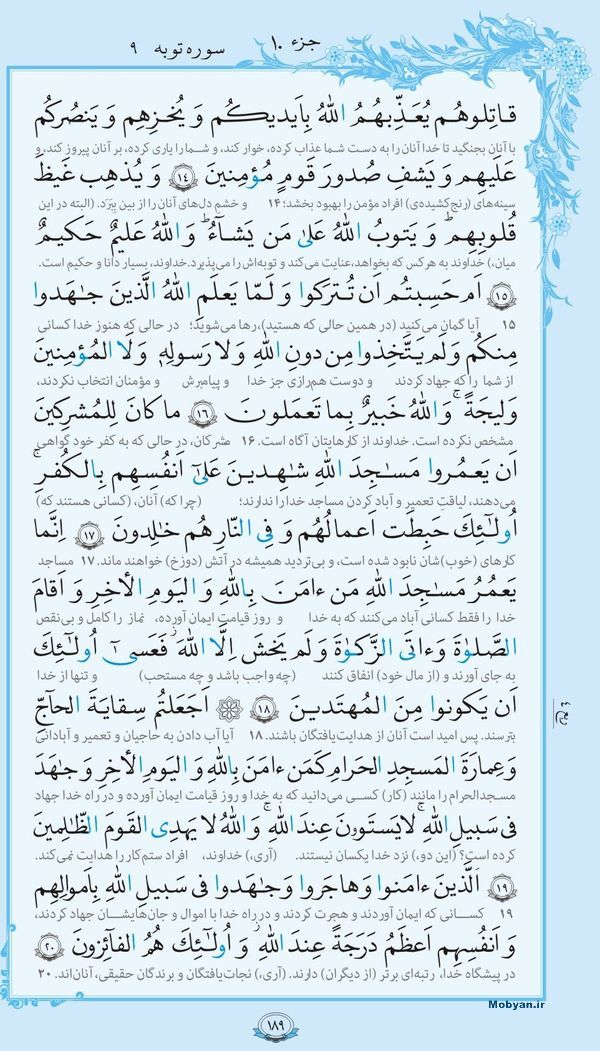 جزء ۱۰
سوره توبه ۹
قاتِلوهُم یُعَذِّبهُمُ اللهُ بِاَیدیکُم وَ یُخزِهِم وَ یَنصُرکُم
با آنان بجنگید تا خدا آنان را به دست شما عذاب کرده، خوار کند، و شما را یاری کرده، بر آنان پیروز کند، و
عَلَیهِم وَ یَشفِ صُدورَ قَومٍ مُؤمِنینَ ﴿۱٤﴾ وَ یُذهِب غَیظَ
سینه‌های (رنج‌کشیده‌ی) افراد مؤمن را بهبود بخشد؛ ۱۴ و خشم دل‌های آنان را از بین بِبَرَد. (البته در این
قُلوبِهِم ۗ وَ یَتوبُ اللهُ عَلیٰ مَن یَشاءُ ۗ وَ اللهُ عَلیمٌ حَکیمٌ
میان،) خداوند به هر کس که بخواهد، عنایت می‌کند و توبه‌اش را می‌پذیرد. خداوند، بسیار دانا و حکیم است.
﴿۱٥﴾ اَم حَسِبتُم اَن تُترَکوا وَ لَمّا یَعلَمِ اللهُ الَّذینَ جٰهَدوا
۱۵ آیا گمان می‌کنید (در همین حالی که هستید)، رها می‌شوید؛ در حالی که هنوز خدا کسانی
مِنکُم وَلَم یَتَّخِذوا مِن دونِ اللهِ وَلا رَسولِهٖ وَلَا المُؤمِنینَ
از شما را که جهاد کردند و دوست هم‌رازی جز خدا و پیامبرش و مؤمنان انتخاب نکردند،
وَلیجَةً ۚ وَاللهُ خَبیرٌ بِما تَعمَلونَ ﴿۱٦﴾ ما کانَ لِلمُشرِکینَ
مشخص نکرده است. خداوند از کارهایتان آگاه است. ۱۶ مشرکان، در حالی که به کفر خود گواهی
اَن یَعمُروا مَسٰجِدَ اللهِ شٰهِدینَ عَلیٰٓ اَنفُسِهِم بِالکُفرِ ۚ
می‌دهند، لیاقتِ تعمیر و آباد کردن مساجد خدا را ندارند؛ (چرا که) آنان، (کسانی هستند که)
اُولٰئِکَ حَبِطَت اَعمالُهُم وَ فِی النّارِ هُم خالِدونَ ﴿۱٧﴾ اِنَّما
کارهای (خوب)شان نابود شده است، و بی‌تردید همیشه در آتش (دوزخ) خواهند ماند. ۱۷ مساجد
یَعمُرُ مَسٰجِدَ اللهِ مَن ءامَنَ بِاللهِ وَ الیَومِ الأخِرِ وَ اَقامَ
خدا را فقط کسانی آباد می‌کنند که به خدا و روز قیامت ایمان آورده، نماز را کامل و بی‌نقص
الصَّلوٰةَ وَءاتَی الزَّکوٰةَ وَ لَم یَخشَ اِلَّا اللهَ ۖ فَعَسیٰٓ اُولٰئِکَ
به جای آورند و (از مال خود) انفاق کنند (چه واجب باشد و چه مستحب) و تنها از خدا
اَن یَکونوا مِنَ المُهتَدینَ ﴿۱٨﴾ ۞ اَجَعَلتُم سِقایَةَ الحآجِّ
بترسند. پس امید است آنان از هدایت‌یافتگان باشند. ۱۸ آیا آب دادن به حاجیان و تعمیر و آبادانی
وَ عِمارَةَ المَسجِدِ الحَرامِ کَمَن ءامَنَ بِاللهِ وَ الیَومِ الأخِرِ وَ جٰهَدَ
مسجدالحرام را مانند (کار) کسی می‌دانید که به خدا و روز قیامت ایمان آورده و در راه خدا جهاد
فی سَبیلِ اللهِ ۚ لا یَستَوونَ عِندَ اللهِ ۗ وَ اللهُ لا یَهدِی القَومَ الظّٰلِمینَ
کرده است؟ (این دو،) نزد خدا یکسان نیستند. (آری،) خداوند، افراد ستم‌کار را هدایت نمی‌کند.
﴿۱٩﴾ اَلَّذینَ ءامَنوا وَ هاجَروا وَ جٰهَدوا فی سَبیلِ اللهِ بِاَموالِهِم
۱۹ کسانی که ایمان آوردند و هجرت کردند و در راه خدا با اموال و جان‌هایشان جهاد کردند،
وَ اَنفُسِهِم اَعظَمُ دَرَجَةً عِندَ اللهِ ۚ وَ اُولٰئِکَ هُمُ الفآئِزونَ ﴿۲۰﴾
در پیشگاه خدا، رتبه‌ای برتر (از دیگران) دارند. (آری،) نجات‌یافتگان و برندگان حقیقی، آنان‌اند. ۲۰
Mobyan.ir
۱۸۹